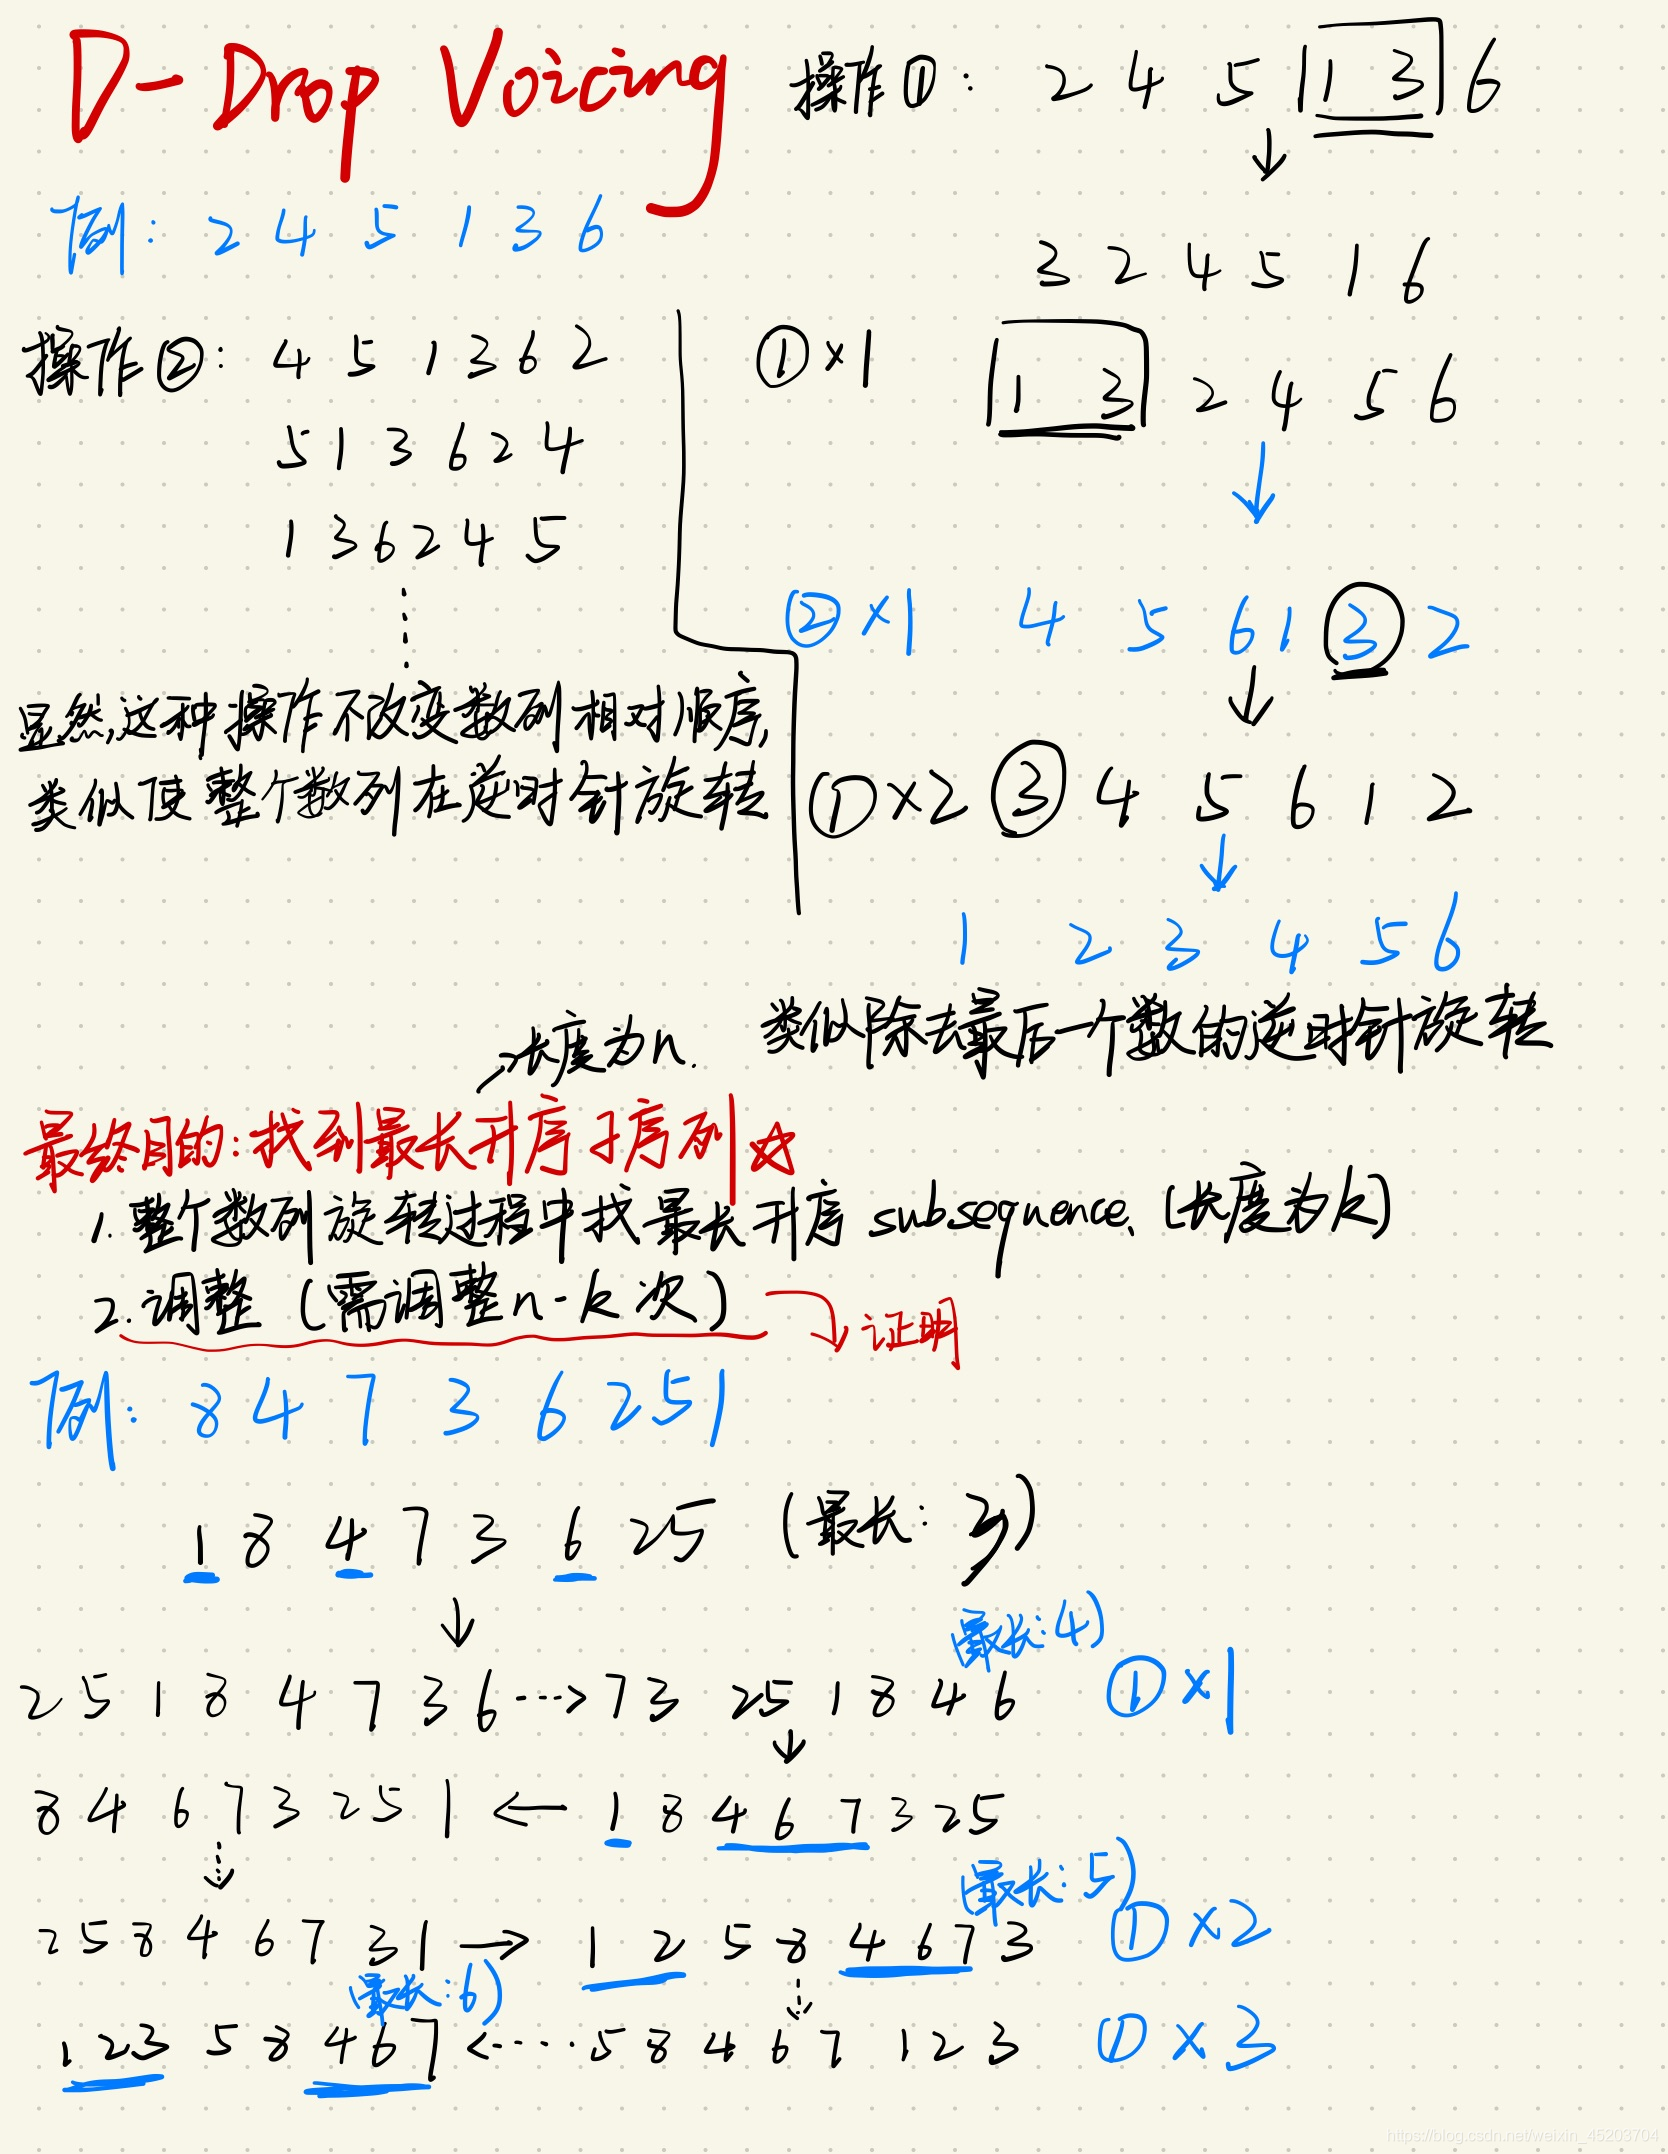 D-Drop Voicing
例: 2 4 5 1 3 6
操作②: 4 5 1 3 6 2
5 1 3 6 2 4
1 3 6 2 4 5
显然,这种操作不改变数列相对顺序,
类似使整个数列在逆时针旋转
操作①: 2 4 5 1 3 6
3 2 4 5 1 6
①×1 1 3 2 4 5 6
②×1 4 5 6 1 3 2
①×2 3 4 5 6 1 2
1 2 3 4 5 6
类似除去最后一个数的逆时针旋转
长度为n.
最终目的:找到最长升序子序列
1.整个数列旋转过程中找最长升序 subsequence、(长度为k)
2.调整 (需调整n-k次)
证明
例: 8 4 7 3 6 2 5 1
1 8 4 7 3 6 2 5 (最长: 3)
(最长:4)
2 5 1 8 4 7 3 6 ---> 7 3 2 5 1 8 4 6 ①×1
8 4 6 7 3 2 5 1 ← 1 8 4 6 7 3 2 5
(最长:5)
2 5 8 4 6 7 3 1 → 1 2 5 8 4 6 7 3 ①×2
(最长:6)
1 2 3 5 8 4 6 7 <---- 5 8 4 6 7 1 2 3 ①×3
https://blog.csdn.net/weixin_45203704